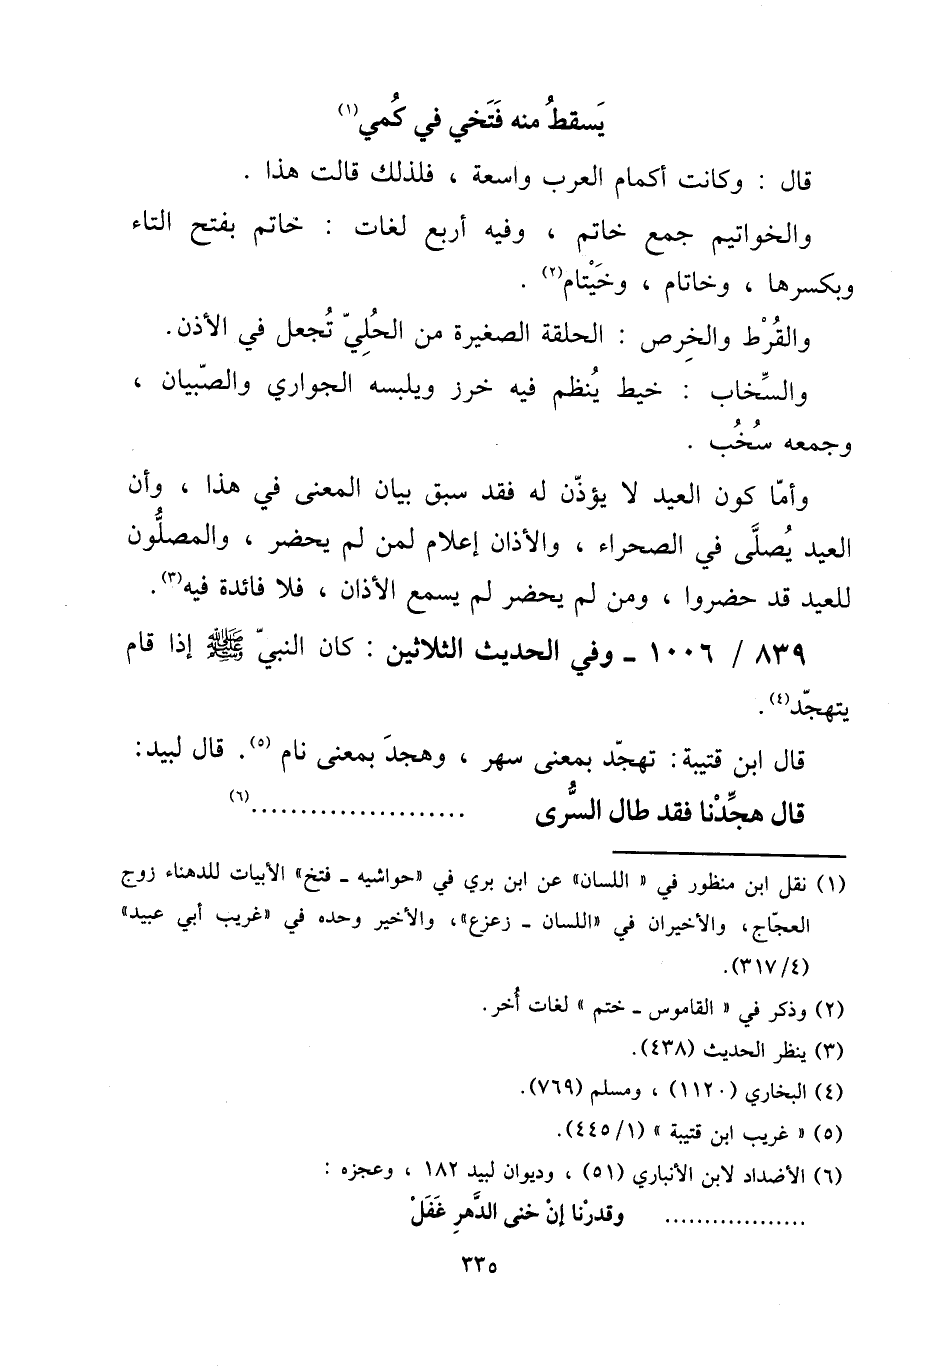 يَسقطُ منه فَتَخي في كُمي(١)
قال : وكانت أكمام العرب واسعة ، فلذلك قالت هذا .
والخواتيم جمع خاتم ، وفيه أربع لغات : خاتم بفتح التاء
وبكسرها ، وخاتام ، وخَيْتام(٢) .
والقُرْط والخِرص : الحلقة الصغيرة من الحُلِيّ تُجعل في الأذن.
والسِّخاب : خيط يُنظم فيه خرز ويلبسه الجواري والصّبيان ،
وجمعه سُخُب .
وأمّا كون العيد لا يؤذّن له فقد سبق بيان المعنى في هذا ، وأن
العيد يُصلَّى في الصحراء ، والأذان إعلام لمن لم يحضر ، والمصلُّون
للعيد قد حضروا ، ومن لم يحضر لم يسمع الأذان ، فلا فائدة فيه(٣).
٨٣٩ / ١٠٠٦ ـ وفي الحديث الثلاثين : كان النبيّ ﷺ إذا قام
يتهجّد(٤).
قال ابن قتيبة: تهجّد بمعنى سهر ، وهجدَ بمعنى نام (٥). قال لبيد:
قال هجِّدْنا فقد طال السُّرى ......................(٦)
(١) نقل ابن منظور في « اللسان» عن ابن بري في «حواشيه ـ فتخ» الأبيات للدهناء زوج
العجّاج، والأخيران في «اللسان ـ زعزع»، والأخير وحده في «غريب أبي عبيد»
(٣١٧/٤).
(٢) وذكر في « القاموس ـ ختم » لغات أُخر.
(٣) ينظر الحديث (٤٣٨).
(٤) البخاري (١١٢٠) ، ومسلم (٧٦٩).
(٥) « غريب ابن قتيبة » (٤٤٥/١).
(٦) الأضداد لابن الأنباري (٥١) ، وديوان لبيد ١٨٢ ، وعجزه :
.................. وقدرْنا إنْ خنى الدَّهرِ غَفَلْ
٣٣٥